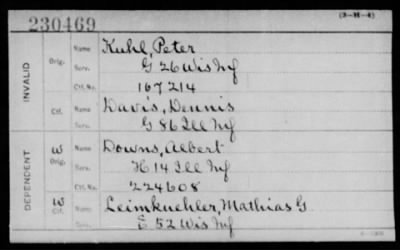 230469
(3-M-4)
INVALID
Orig. Name Kuhl, Peter
Serv. G 26 Wis Inf
Ctf. No. 167214
Ctf. Name Davis, Dennis
Serv. G 86 Ill Inf
DEPENDENT
W Orig. Name Downs, Albert
Serv. H 14 Ill Inf
Ctf. No. 224608
W Ctf. Name Leimkuehler, Mathias G
Serv. E 52 Wis Inf